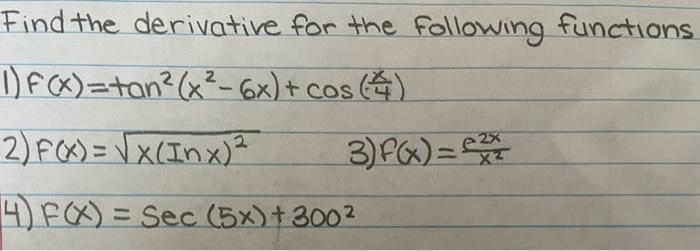 Find the derivative for the following functions
1) f(x)=tan²(x²-6x)+cos(x/4)
2) F(x)=√x(Inx)² 3) f(x)=e^2x/x²
4) F(x) = Sec (5x)+300²